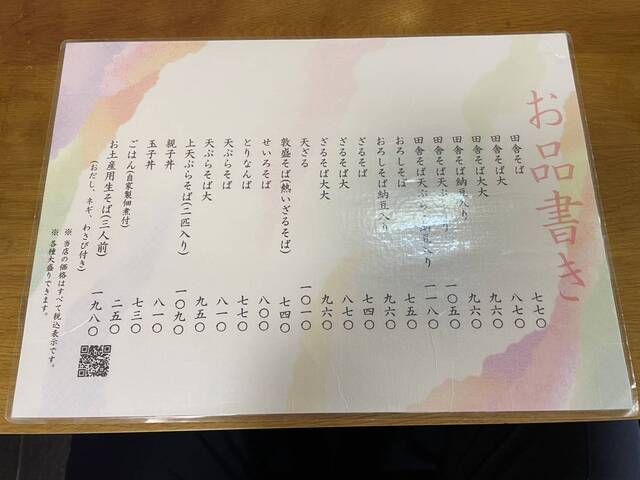 お品書き
田舎そば 七七〇
田舎そば大 八七〇
田舎そば大大 九六〇
田舎そば納豆入り 九六〇
田舎そば天ぷら入り 一〇五〇
田舎そば天ぷら、納豆入り 一一八〇
おろしそば 七五〇
おろしそば納豆入り 九六〇
ざるそば 七四〇
ざるそば大 八七〇
ざるそば大大 九六〇
天ざる 一〇一〇
敦盛そば(熱いざるそば) 七四〇
せいろそば 八〇〇
とりなんば 七七〇
天ぷらそば 八一〇
天ぷらそば大 九五〇
上天ぷらそば(二匹入り) 一〇九〇
親子丼 八一〇
玉子丼 七三〇
ごはん(自家製佃煮付) 二五〇
お土産用生そば(三人前) 一九八〇
(おだし、ネギ、わさび付き)
※ 当店の価格はすべて税込表示です。
※ 各種大盛りできます。